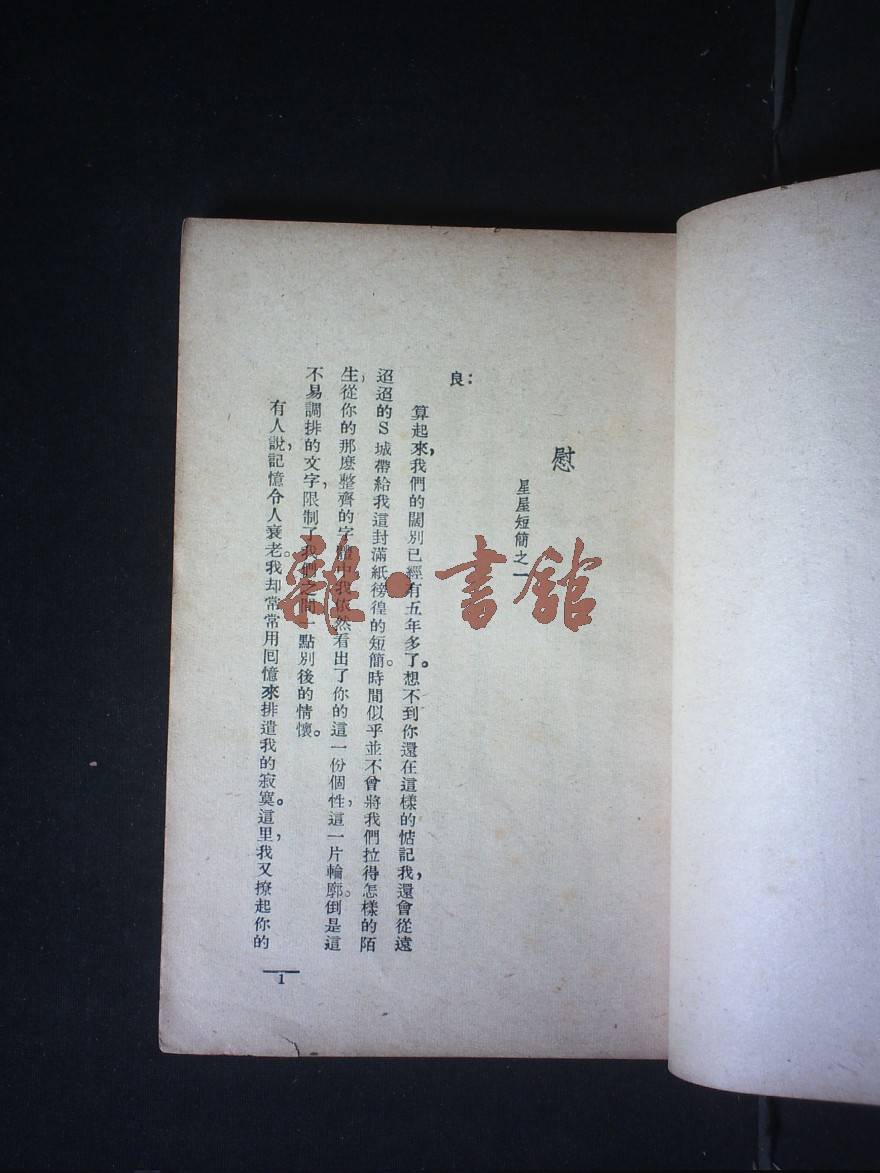 慰
星屋短簡之一
良：
算起來，我們的闊別已經有五年多了。想不到你還在這樣的惦記我，還會從遠
迢迢的S城帶給我這封滿紙徬徨的短簡。時間似乎並不曾將我們拉得怎樣的陌
生，從你的那麼整齊的字體中我依然看出了你的這一份個性，這一片輪廓。倒是這
不易調排的文字，限制了我們之間一點別後的情懷。
有人說，記憶令人衰老。我却常常用囘憶來排遣我的寂寞。這里，我又撩起你的
1
雜·書館